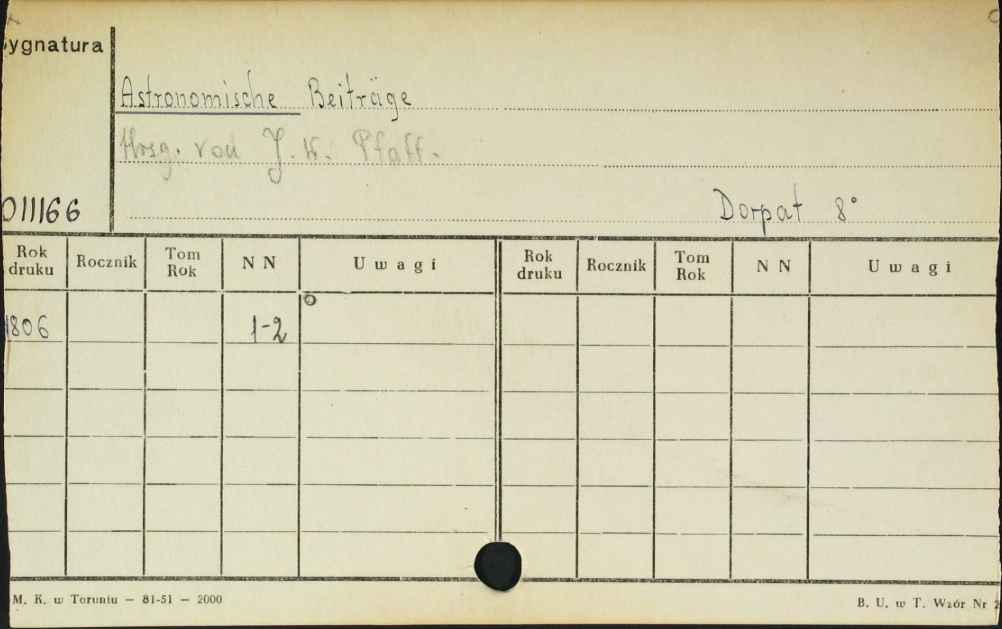 Sygnatura
Astronomische Beiträge
Hrsg. von J. W. Pfaff.
011166
Dorpat 8°
Rok druku Rocznik Tom Rok N N Uwagi Rok druku Rocznik Tom Rok N N Uwagi
1806 1-2
M. K. w Toruniu — 81-51 — 2000
B. U. w T. Wzór Nr 2